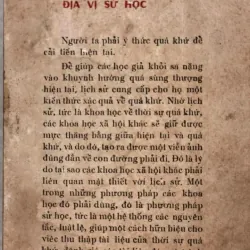 ĐỊA VỊ SỬ HỌC
Người ta phải ý thức quá khứ để
cải tiến hiện tại.
Để giúp các học giả khỏi sa nặng
vào khuynh hướng quá sùng thượng
hiện tại, lịch sử cung cấp cho họ một
kiến thức xác quả về quá khứ. Nhờ lịch
sử, tức là khoa học về thời sự quá khứ,
các khoa học xã hội khác sẽ giữ được
mực thăng bằng giữa hiện tại và quá
khứ, và do đó, tạo ra được một viễn ảnh
đúng đắn về con đường phải đi. Đó là lý
do tại sao các khoa học xã hội khác phải
liên quan mật thiết với lịch sử. Một
trong những phương pháp các khoa
học đó phải dùng, đó là phương pháp
sử học, tức là một hệ thống các nguyên
tắc, luật lệ, giúp một cách hữu hiện cho
việc thu thập tài liệu của thời sự quá